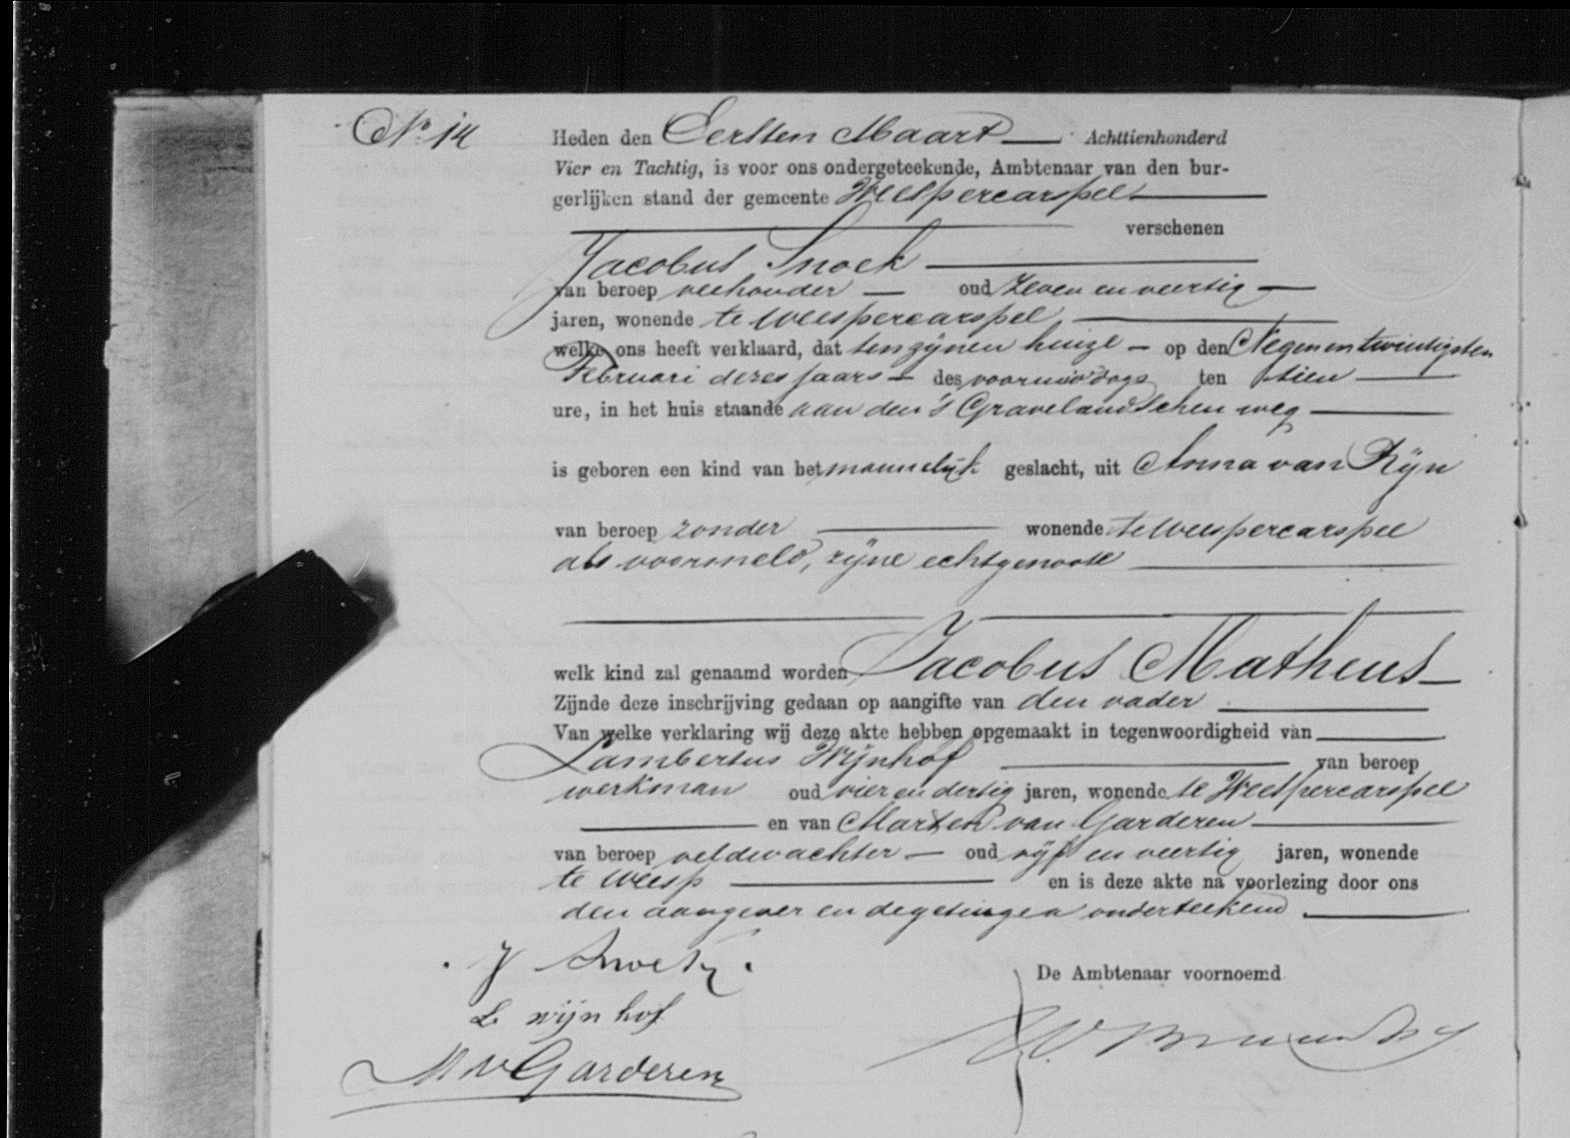 No 14
Heden den Eersten Maart Achttienhonderd
Vier en Tachtig, is voor ons ondergeteekende, Ambtenaar van den bur-
gerlijken stand der gemeente Weespercarspel
verschenen
Jacobus Snoek
van beroep veehouder oud zeven en veertig
jaren, wonende te Weespercarspel
welke ons heeft verklaard, dat ten zijnen huize op den Negenentwintigsten
Februari dezes jaars des voormiddags ten tien
ure, in het huis staande aan den 's Gravelandschen weg
is geboren een kind van het mannelijk geslacht, uit Anna van Rijn
van beroep zonder wonende te Weespercarspel
als voormeld, zijne echtgenoote
welk kind zal genaamd worden Jacobus Matheus
Zijnde deze inschrijving gedaan op aangifte van den vader
Van welke verklaring wij deze akte hebben opgemaakt in tegenwoordigheid van
Lambertus Wijnhof van beroep
werkman oud vier en dertig jaren, wonende te Weespercarspel
en van Marten van Garderen
van beroep veldwachter oud vijf en veertig jaren, wonende
te Weesp en is deze akte na voorlezing door ons
den aangever en de getuigen onderteekend
J Snoek
De Ambtenaar voornoemd
L wijnhof
M v Garderen